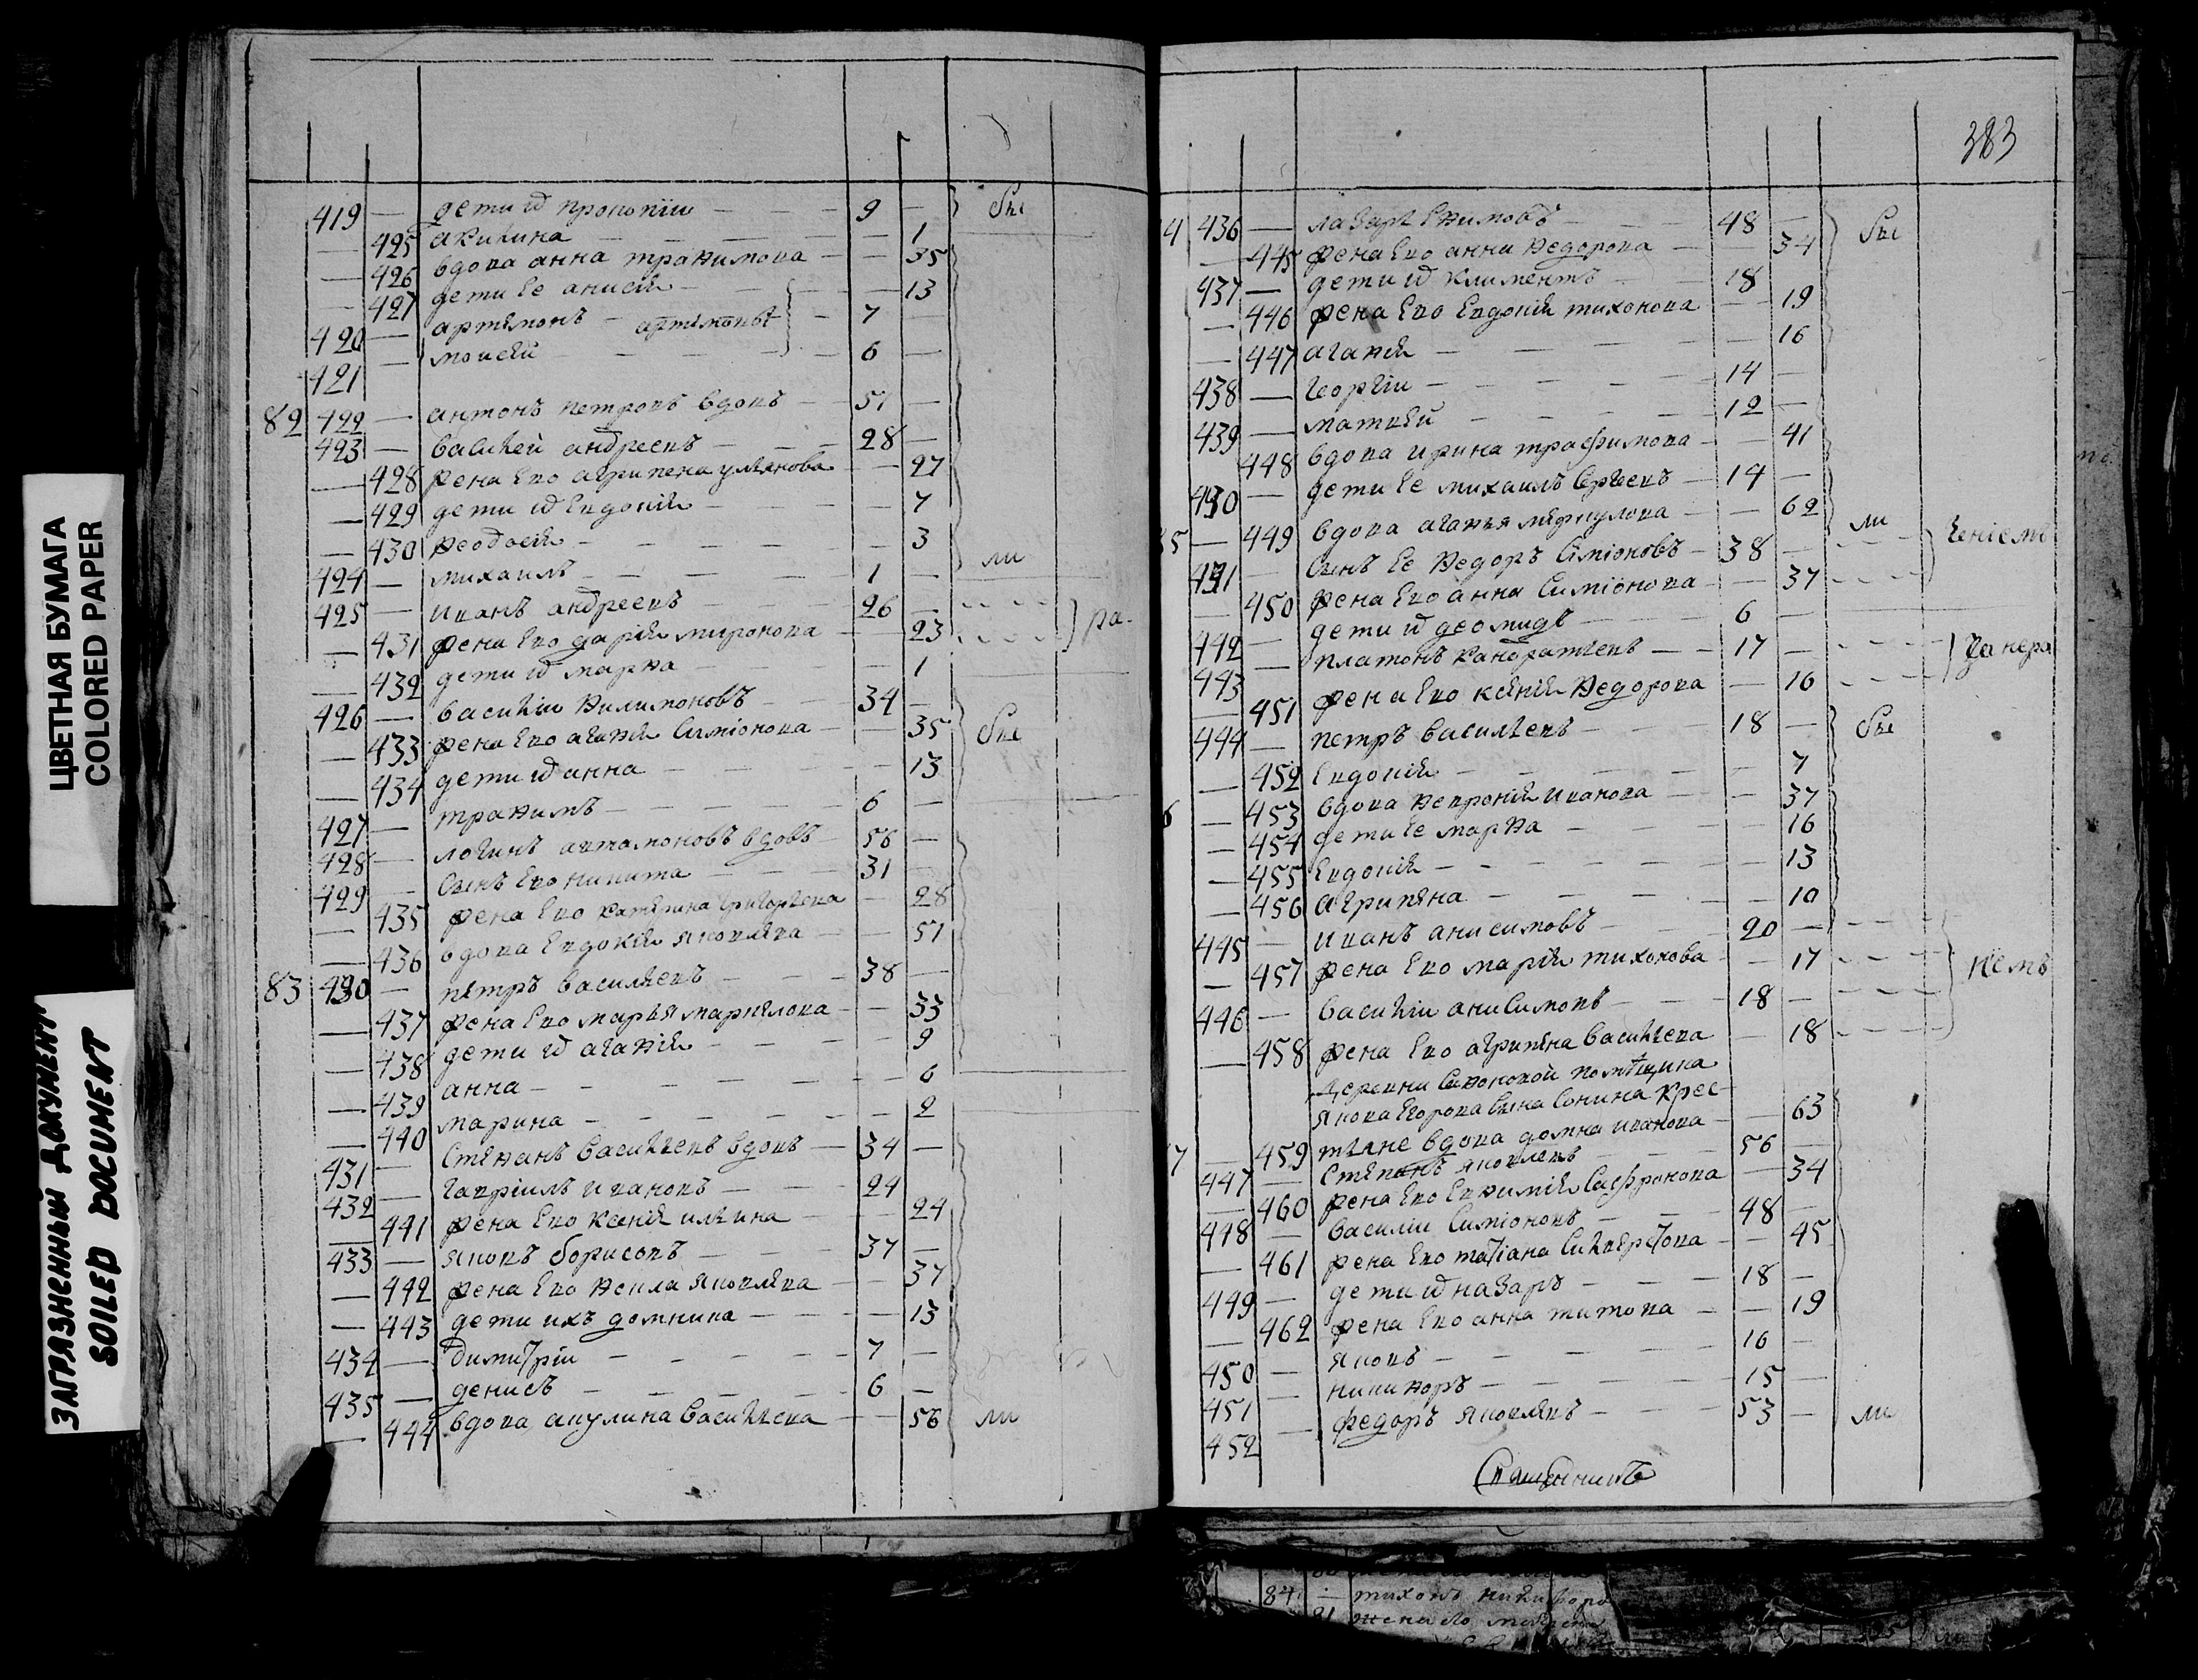 ЦВЕТНАЯ БУМАГА
COLORED PAPER
ЗАГРЯЗНЕННЫЙ ДОКУМЕНТ
SOILED DOCUMENT
419 — дети их прокопiи — 9 — бы
— 425 акилина — 1
— 426 вдова анна трафимова — 35
— 427 дети ее анисiя — 13
420 — артемонъ артемоновы — 7 —
421 — моисей — 6 —
82 422 — антонъ петровъ вдовъ — 51 —
423 — василей андреевъ — 28 —
— 428 жена ево агрипена ульянова — 27
— 429 дети их евдокiя — 7
— 430 феодосiя — 3
424 — михаилъ — 1 — ли
425 — иванъ андреевъ — 26 —
— 431 жена ево дарiя миронова — 23 ра-
— 432 дети их марфа — 1
426 — василiи филимоновъ — 34 —
— 433 жена ево агафiя симiонова — 35 бы
— 434 дети их анна — 13
427 — трафимъ — 6 —
428 — логинъ автамоновъ вдовъ 56 —
429 — сынъ ево никита — 31 —
— 435 жена ево катерина григорьева — 28
— 436 вдова евдокiя яковлева — 51
83 430 — петръ васильевъ — 38 —
— 437 жена ево марья маркелова — 33
— 438 дети их агафiя — 9
— 439 анна — 6
— 440 марина — 2
431 — стефанъ васильевъ вдовъ — 34 —
432 — гаврiилъ ивановъ — 24
— 441 жена ево ксенiя ильина — 24
433 — яковъ борисовъ — 37 —
— 442 жена ево фекла яковлева — 37
— 443 дети ихъ домника — 13
434 — димитрiи — 7 —
435 — денисъ — 6 —
— 444 вдова акулина васильева — 56 ли
383
4 436 — лазарь ефимовъ — 48 — бы
— 445 жена ево анна федорова — 34
437 — дети их климентъ — 18
— 446 жена ево евдокiя тихонова — 19
— 447 агафiя — 16
438 — георгiи — 14 —
439 — матвей — 12 —
448 вдова ирина трафимова — 41
430 — дети ее михаилъ сергеевъ — 14 —
5 — 449 вдова агафья меркулова — 62 ли
431 — сынъ ее федоръ симiоновъ — 38 — ченiемъ
450 жена ево анна симiонова — 37
442 — дети их деомидъ — 6 —
443 — платонъ кандратьевъ — 17 —
— 451 жена ево ксенiя федорова — 16
444 — петръ васильевъ — 18 — бы
— 452 евдокiя — 7
6 — 453 вдова февронiя иванова — 37
— 454 дети ее марфа — 16
— 455 евдокiя — 13
— 456 агрипена — 10
445 — иванъ анисимовъ — 20 —
— 457 жена ево марiя тихонова — 17 нiемъ
446 — василiи анисимовъ — 18 —
— 458 жена ево агрипена васильева — 18
деревни помещика
якова егорова сына сонина крес-
7 — 459 тьяне вдова домна иванова — 63
447 — степанъ яковлевъ — 56 —
— 460 жена ево евфимiя сафронова — 34
448 — василiи симiоновъ — 48 —
— 461 жена ево татiана силвестрова — 45
449 — дети их назаръ — 18 —
— 462 жена ево анна титова — 19
450 — яковъ — 16 —
451 — никифоръ — 15 —
452 — федоръ яковлевъ — 53 — ли
священникъ
84 — тихонъ никифоро